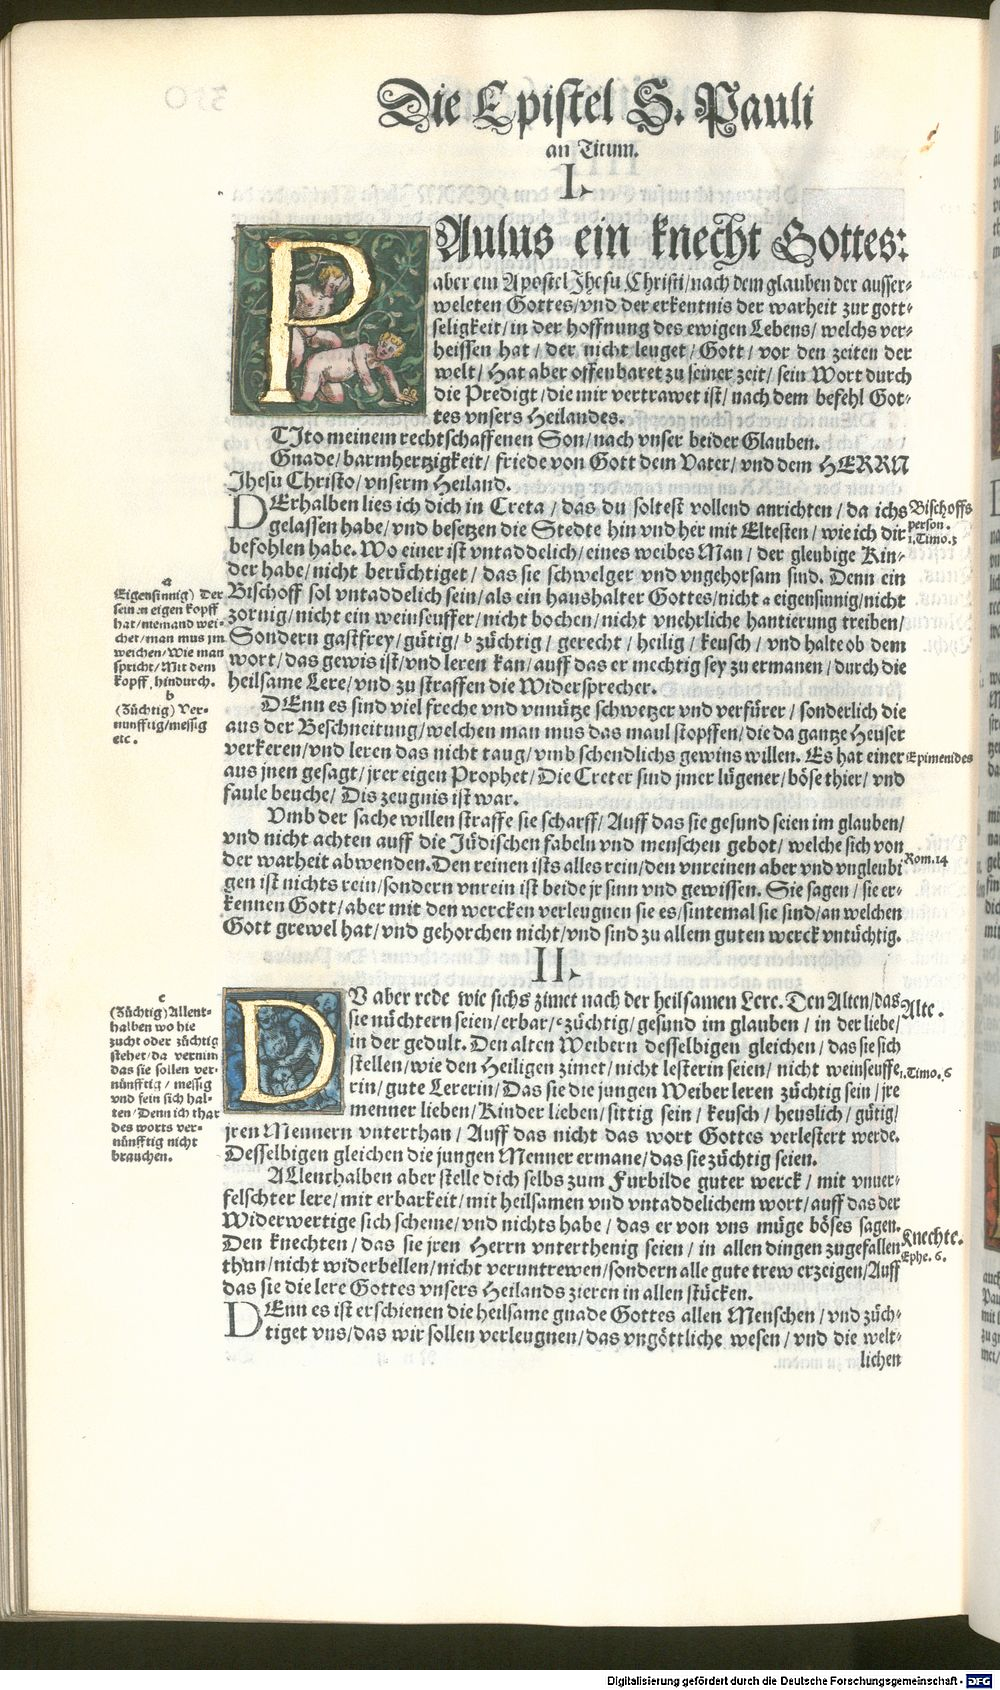 Die Epistel S. Pauli
an Titum.
I.
PAulus ein knecht Gottes:
aber ein Apostel Jhesu Christi/nach dem glauben der ausser-
weleten Gottes/vnd der erkentnis der warheit zur gott-
seligkeit/in der hoffnung des ewigen Lebens/welchs ver-
heissen hat/der nicht leuget/Gott/vor den zeiten der
welt/Hat aber offenbaret zu seiner zeit/sein Wort durch
die Predigt/die mir vertrawet ist/nach dem befehl Got-
tes vnsers Heilandes.
TIto meinem rechtschaffenen Son/nach vnser beider Glauben.
Gnade/barmhertzigkeit/friede von Gott dem Vater/vnd dem HERRN
Jhesu Christo/vnserm Heiland.
DErhalben lies ich dich in Creta/das du soltest vollend anrichten/da ichs
gelassen habe/vnd besetzen die Stedte hin vnd her mit Eltesten/wie ich dir
befohlen habe. Wo einer ist vntaddelich/eines weibes Man/der gleubige Kin-
der habe/nicht berüchtiget/das sie schwelger vnd vngehorsam sind. Denn ein
Bischoff sol vntaddelich sein/als ein haushalter Gottes/nicht a eigensinnig/nicht
zornig/nicht ein weinseuffer/nicht bochen/nicht vnehrliche hantierung treiben/
Sondern gastfrey/gütig/ b züchtig/gerecht/heilig/keusch/vnd halte ob dem
wort/das gewis ist/vnd leren kan/auff das er mechtig sey zu ermanen/durch die
heilsame Lere/vnd zu straffen die Widersprecher.
DEnn es sind viel freche vnd vnnütze schwetzer vnd verfürer/sonderlich die
aus der Beschneitung/welchen man mus das maul stopffen/die da gantze Heuser
verkeren/vnd leren das nicht taug/vmb schendlichs gewins willen. Es hat einer
aus jnen gesagt/jrer eigen Prophet/Die Creter sind jmer lügener/böse thier/vnd
faule beuche/Dis zeugnis ist war.
Vmb der sache willen straffe sie scharff/Auff das sie gesund seien im glauben/
vnd nicht achten auff die Jüdischen fabeln vnd menschen gebot/welche sich von
der warheit abwenden. Den reinen ists alles rein/den vnreinen aber vnd vngleubi
gen ist nichts rein/sondern vnrein ist beide jr sinn vnd gewissen. Sie sagen/sie er-
kennen Gott/aber mit den wercken verleugnen sie es/sintemal sie sind/an welchen
Gott grewel hat/vnd gehorchen nicht/vnd sind zu allem guten werck vntüchtig.
Bischoffs
person.
1.Timo.3
a
(Eigensinnig) Der
seinen eigen kopff
hat/niemand wei-
chet/man mus jm
weichen/Wie man
spricht/Mit dem
kopff hindurch.
b
(Züchtig) Ver-
nunfftig/messig
etc.
Epimenides
Rom.14
II.
DV aber rede wie sichs zimet nach der heilsamen Lere. Den Alten/das
sie nüchtern seien/erbar/ c züchtig/gesund im glauben/in der liebe/
in der gedult. Den alten Weibern desselbigen gleichen/das sie sich
stellen/wie den Heiligen zimet/nicht lesterin seien/nicht weinseuffe
rin/gute Lererin/Das sie die jungen Weiber leren züchtig sein/jre
menner lieben/Kinder lieben/sittig sein/keusch/heuslich/gütig/
jren Mennern vnterthan/Auff das nicht das wort Gottes verlestert werde.
Desselbigen gleichen die jungen Menner ermane/das sie züchtig seien.
ALlenthalben aber stelle dich selbs zum Furbilde guter werck/mit vnuer-
felschter lere/mit erbarkeit/mit heilsamen vnd vntaddelichem wort/auff das der
Widerwertige sich scheme/vnd nichts habe/das er von vns müge böses sagen.
Den knechten/das sie jren Herrn vnterthenig seien/in allen dingen zugefallen
thun/nicht widerbellen/nicht veruntrewen/sondern alle gute trew erzeigen/Auff
das sie die lere Gottes vnsers Heilands zieren in allen stücken.
DEnn es ist erschienen die heilsame gnade Gottes allen Menschen/vnd züch-
tiget vns/das wir sollen verleugnen/das vngöttliche wesen/vnd die welt-
lichen
c
(Züchtig) Allent-
halben wo hie
zucht oder züchtig
stehet/da vernim
das sie sollen ver-
nünfftig/messig
vnd fein sich hal-
ten/Denn ich thar
des worts ver-
nünfftig nicht
brauchen.
Alte.
1.Timo.6
Knechte.
Ephe.6.
Digitalisierung gefördert durch die Deutsche Forschungsgemeinschaft - DFG